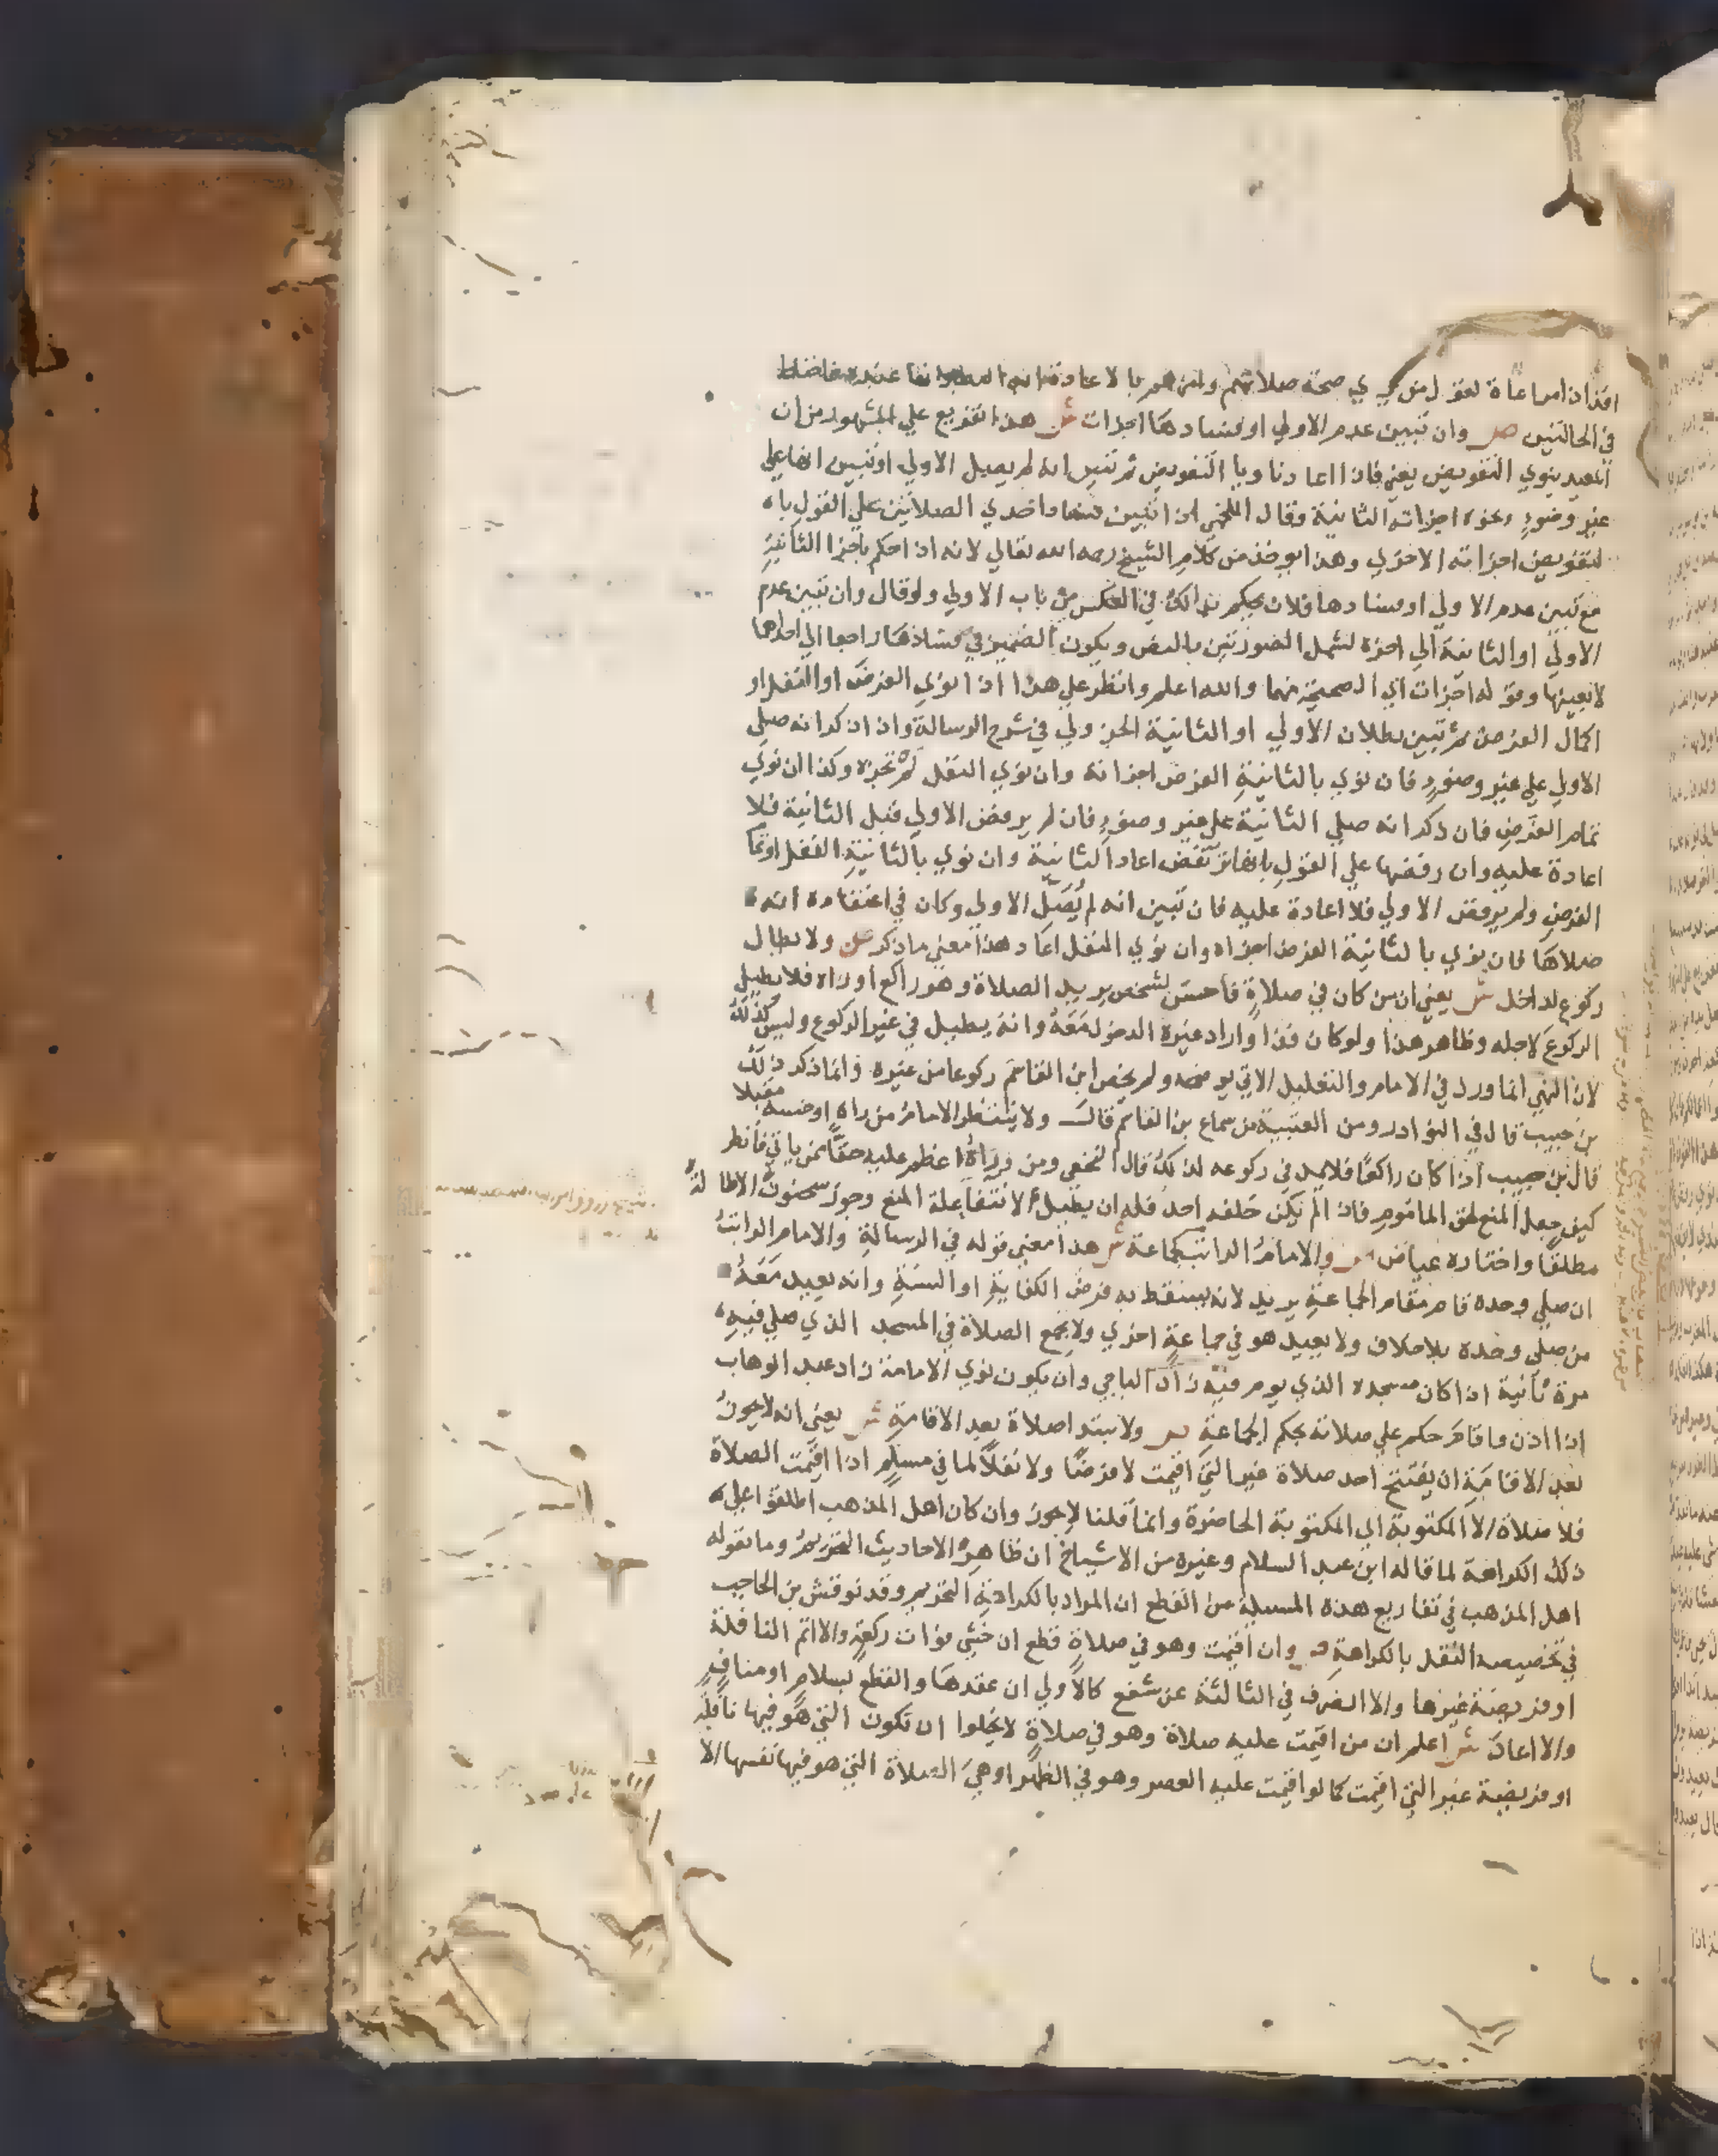 افذاذا مراعاة لقول من يري صحة صلاتهم وامرهم بالاعادة
في الحالتين ص وان تبين عدم الاولي او فسادها اجزات ش هذا تفريع علي المشهور من ان
المعيد ينوي التفويض يعني فاذا اعاد ناويا التفويض ثم تبين انه لم يصل الاولي او تبين انها علي
غير وضوء ونحوه اجزاته الثانية وقال اللخمي اذا تبين فساد احدي الصلاتين علي القول بانه
لتفويض اجزاته الاخري وهذا يوخذ من كلام الشيخ رحمه الله تعالي لانه اذا حكم باجزا الثانية
مع تبين عدم الاولي او فسادها فلان يحكم بذالك في العكس من باب الاولي ولو قال وان تبين عدم
الاولي او الثانية الي اخره لشمل الصورتين بالنص ويكون الضمير في فسادها راجعا الي احداهما
لا بعينها وقوله اجزات اي الصحيحة منهما والله اعلم وانظر علي هذا اذا نوي الفرض او النفل او
اكمال الفرض ثم تبين بطلان الاولي او الثانية الجزولي في شرح الرسالة واذا ذكر انه صلي
الاولي علي غير وضوء فان نوي بالثانية الفرض اجزاته وان نوي النفل لم تجزه وكذا ان نوي
تمام الفرض فان ذكر انه صلي الثانية علي غير وضوء فان لم يرفض الاولي قبل الثانية فلا
اعادة عليه وان رفضها علي القول بانها ترتفض اعاد الثانية وان نوي بالثانية النفل او تمام
الفرض ولم يرفض الاولي فلا اعادة عليه فان تبين انه لم يصل الاولي وكان في اعتقاده انه
صلاها فان نوي بالثانية الفرض اجزاه وان نوي النفل اعاد هذا معني ما ذكر ص ولا يطال
ركوع لداخل ش يعني ان من كان في صلاة فاحس لشخص يريد الصلاة وهو راكع او راه فلا يطيل
الركوع لاجله وظاهر هذا ولو كان فذا واراد غيره الدخول معه وانه يطيل في غير الركوع وليس كذلك
لان النهي انما ورد في الامام والتعليل الاتي يوضحه ولم يخص ابن القاسم ركوعا من غيره وانما ذكر ذلك
بن حبيب قال في النوادر ومن العتبية من سماع بن القاسم قال ولا ينتظر الامام من راه او حسه مقبلا
قال بن حبيب اذا كان راكعا فلا يمد في ركوعه لذلك قال النخعي ومن وراءه اعظم عليه حقا ممن ياتي فانظر
كيف جعل المنع لحق الماموم فاذا لم يكن خلفه احد فله ان يطيل لانتفا علة المنع وجوز سحنون الاطالة
مطلقا واختاره عياض ص والامام الراتب كجماعة ش هذا معني قوله في الرسالة والامام الراتب
ان صلي وحده قام مقام الجماعة يريد لانه يسقط به فرض الكفاية او السنة وانه يعيد معه
من صلي وحده بلا خلاف ولا يعيد هو في جماعة اخري ولا يجمع الصلاة في المسجد الذي صلي فيه
مرة ثانية اذا كان مسجده الذي يوم فيه زاد الباجي وان يكون نوي الامامة زاد عبد الوهاب
اذا اذن واقام حكم علي صلاته بحكم الجماعة ص ولا تبتدا صلاة بعد الاقامة ش يعني انه لا يجوز
بعد الاقامة ان يفتتح احد صلاة غير التي اقيمت لا فرضا ولا نفلا لما في مسلم اذا اقيمت الصلاة
فلا صلاة الا المكتوبة اي المكتوبة الحاضرة وانما قلنا لا يجوز وان كان اهل المذهب اطلقوا علي
ذلك الكراهة لما قاله ابن عبد السلام وغيره من الاشياخ ان ظاهر الاحاديث التحريم وما نقوله
اهل المذهب في تفاريع هذه المسيلة من القطع ان المراد بالكراهة التحريم وقد نوقش بن الحاجب
في تخصيصه النفل بالكراهة ص وان اقيمت وهو في صلاة قطع ان خشي فوات ركعة والا اتم النافلة
او فريضة غيرها والا انصرف في الثالثة عن شفع كالاولي ان عقدها والقطع بسلام او مناف
والا اعاد ش اعلم ان من اقيمت عليه صلاة وهو في صلاة لا يخلوا ان تكون التي هو فيها نافلة
او فريضة غير التي اقيمت كما لو اقيمت عليه العصر وهو في الظهر او هي الصلاة التي هو فيها نفسها الا